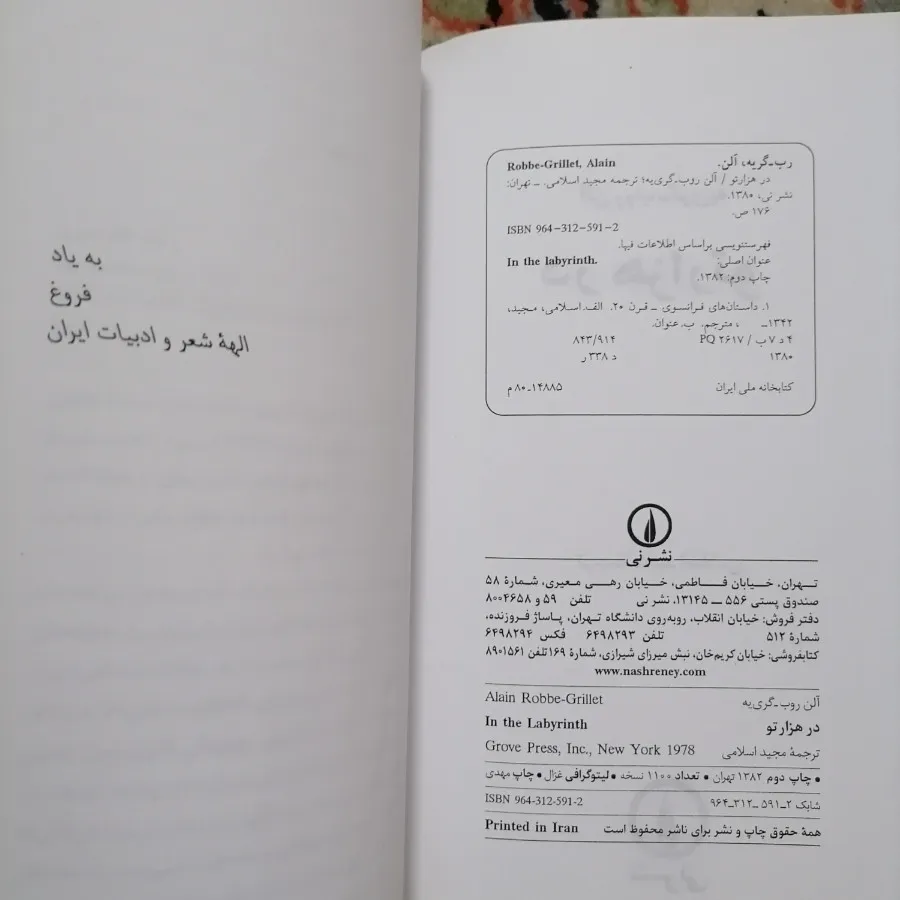 به یاد
فروغ
الههٔ شعر و ادبیات ایران
Robbe-Grillet, Alain رب-گریه، آلن.
در هزارتو / آلن روب-گری‌یه؛ ترجمه مجید اسلامی. ـ تهران:
نشر نی، ۱۳۸۰.
۱۷۶ ص.
ISBN 964-312-591-2
فهرستنویسی براساس اطلاعات فیپا.
عنوان اصلی: In the labyrinth.
چاپ دوم: ۱۳۸۲.
۱. داستان‌های فرانسوی ـ قرن ۲۰. الف.اسلامی، مجید،
۱۳۴۲ـ ، مترجم. ب.عنوان.
۴ د ۷ ب / PQ ۲۶۱۷ ۸۴۳/۹۱۴
۱۳۸۰ د ۳۳۸ ر
کتابخانه ملی ایران ۱۴۸۸۵ـ۸۰ م
نشر نی
تهران، خیابان فاطمی، خیابان رهی معیری، شمارهٔ ۵۸
صندوق پستی ۵۵۶ ــ ۱۳۱۴۵، نشر نی تلفن ۵۹ و ۸۰۰۴۶۵۸
دفتر فروش: خیابان انقلاب، روبه‌روی دانشگاه تهران، پاساژ فروزنده،
شمارهٔ ۵۱۲ تلفن ۶۴۹۸۲۹۳ فکس ۶۴۹۸۲۹۴
کتابفروشی: خیابان کریم‌خان، نبش میرزای شیرازی، شمارهٔ ۱۶۹ تلفن ۸۹۰۱۵۶۱
www.nashreney.com
Alain Robbe-Grillet آلن روب-گری‌یه
In the Labyrinth در هزارتو
Grove Press, Inc., New York 1978 ترجمهٔ مجید اسلامی
• چاپ دوم ۱۳۸۲ تهران • تعداد ۱۱۰۰ نسخه • لیتوگرافی غزال • چاپ مهدی
ISBN 964-312-591-2 شابک ۲ـ۵۹۱ـ۳۱۲ـ۹۶۴
Printed in Iran همهٔ حقوق چاپ و نشر برای ناشر محفوظ است